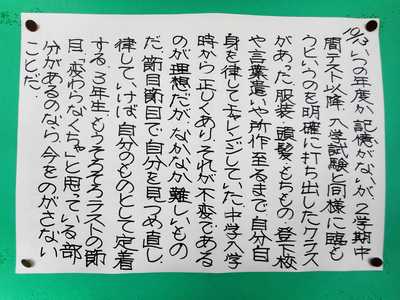 10/2 いつの年度か、記憶がないが、2学期中
間テスト以降、入学試験と同様に臨も
うというのを明確に打ち出したクラス
があった。服装、頭髪、もちもの、登下校
や言葉遣いや所作に至るまで、自分自
身を律してチャレンジしていた。中学入学
時から正しくあり、それが不変である
のが理想だが、なかなか難しいもの
だ。節目節目で自分を見つめ直し、
律していけば、自分のものとして定着
する。3年生、もうそろそろラストの節
目「変わらなくちゃ」と思っている部
分があるのなら、今をのがさない
ことだ。